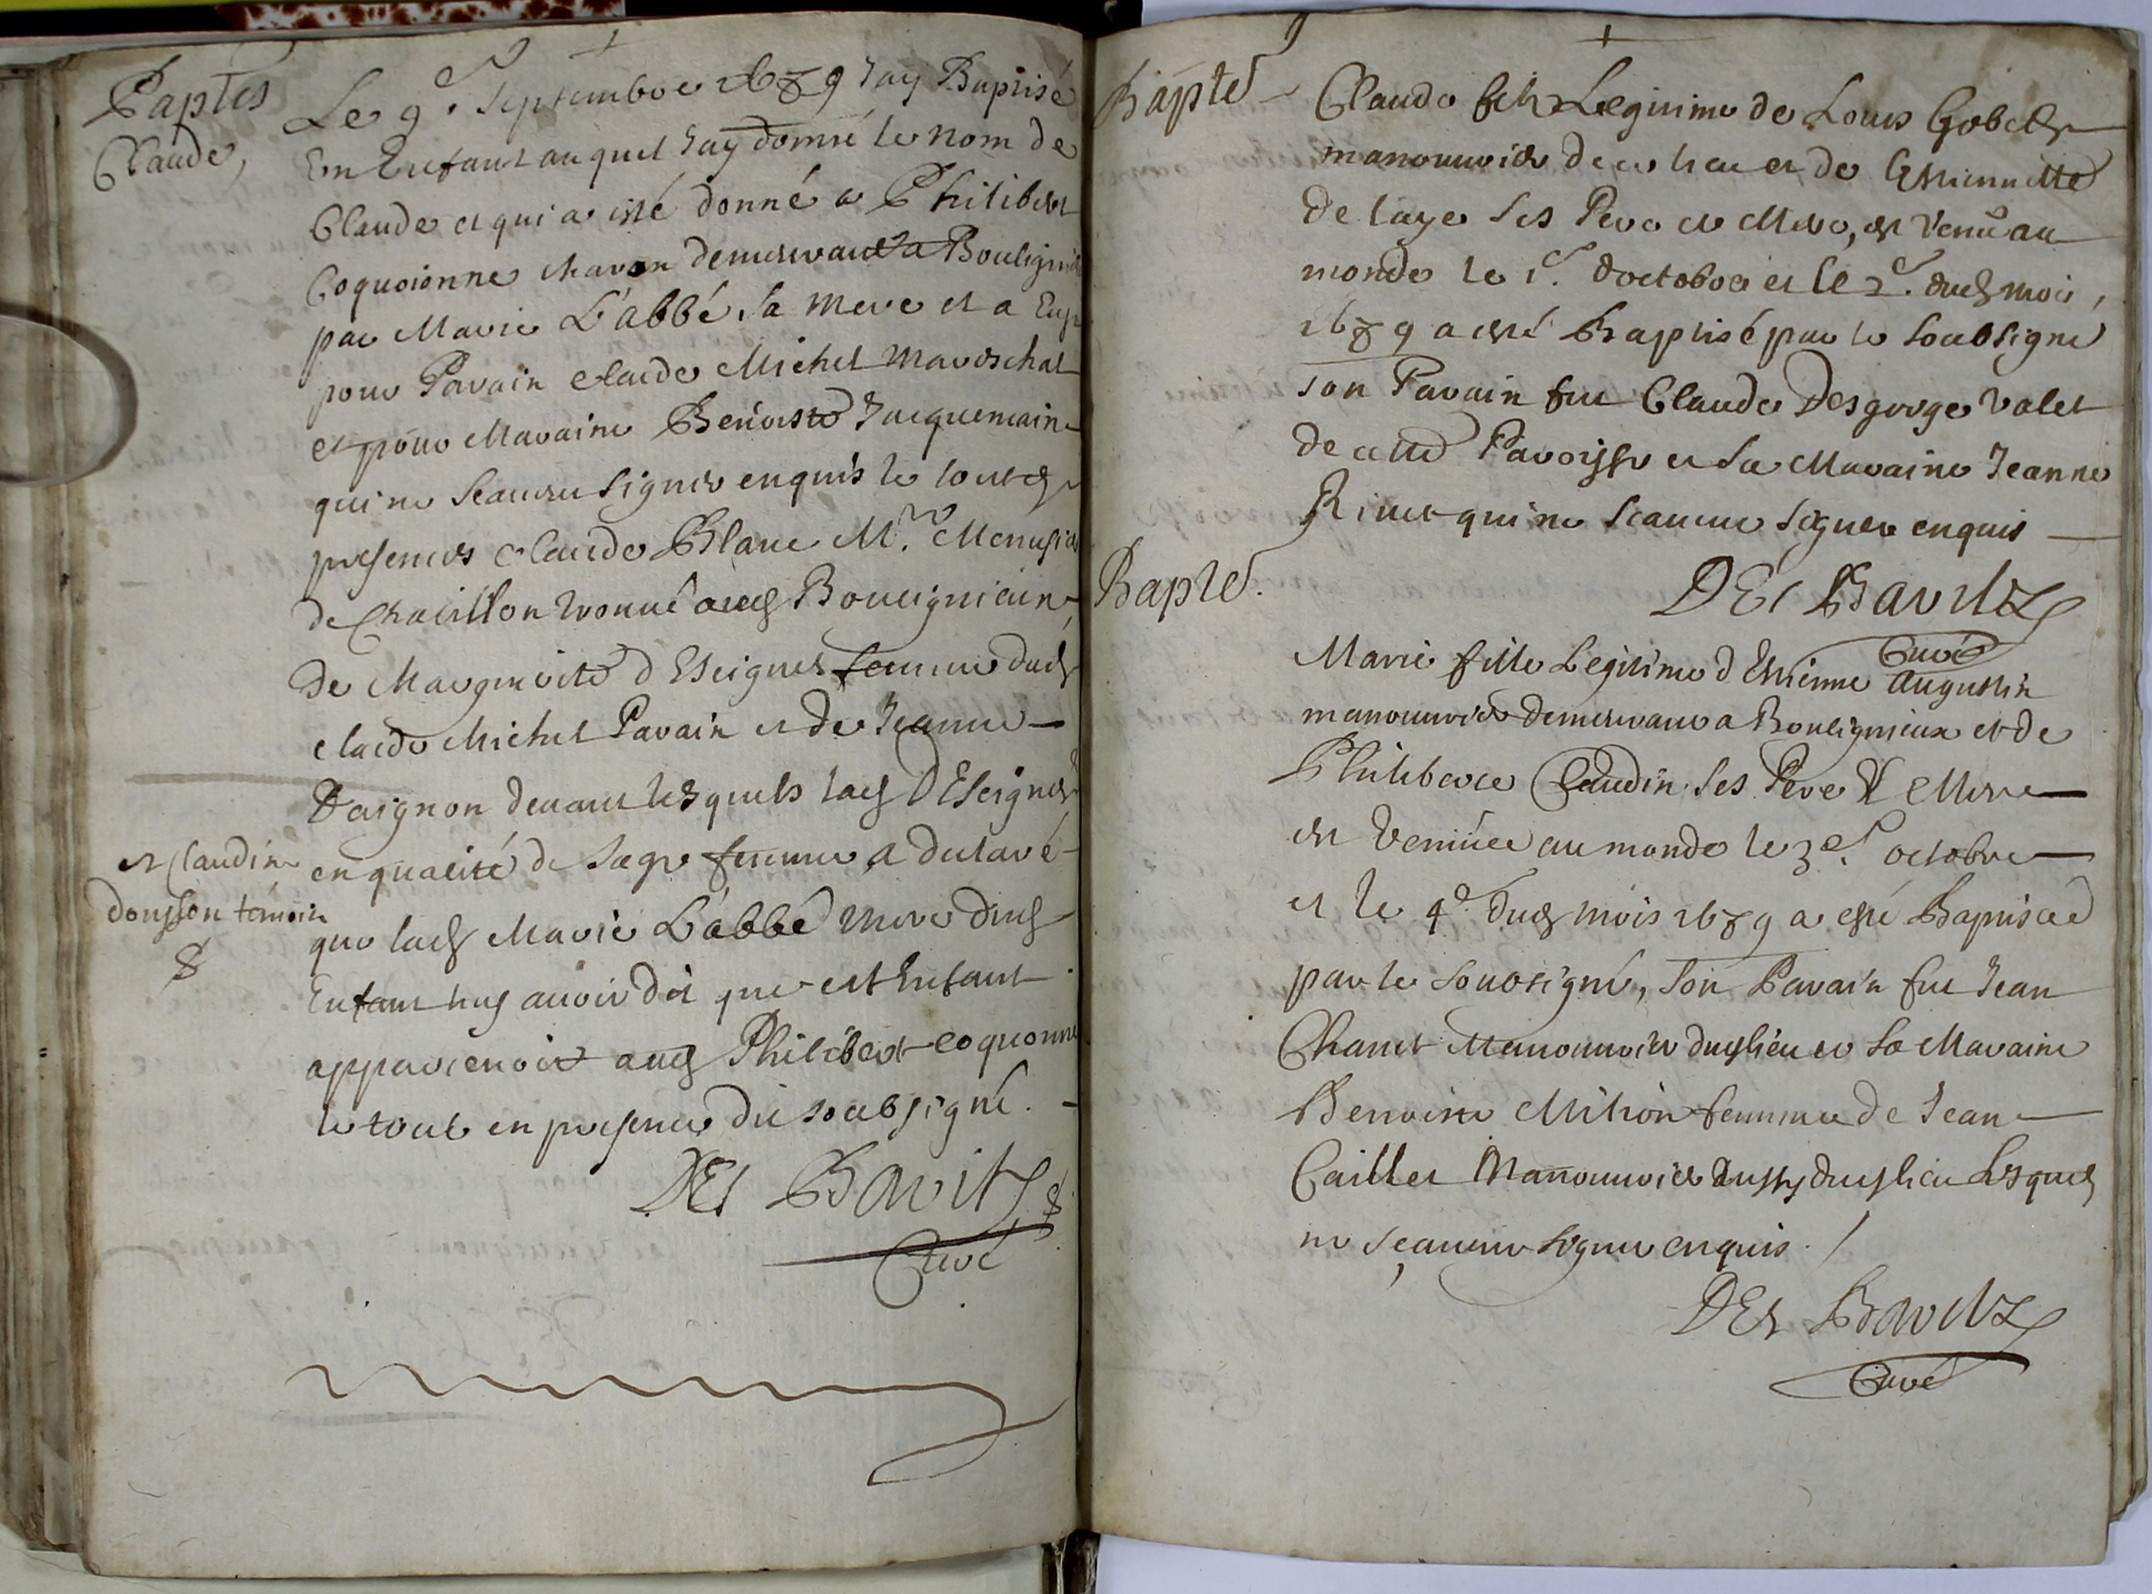 Baptes
Claude,
Le 9e. Septembre 1689 Jay Baptisé
Un Enfant auquel Jay donné le nom de
Claude et qui a esté donné a Philibert
Coquoionne charon demeurant a Bouligni
par Marie L'abbé, sa mere et a Eu
pour Parain claude Michel mareschal
et pour Maraine Benoiste Jacquemain
qui ne sceurent signer enquis le tout
presences claude Blanc Mre. Menusier
de Chatillon audt Boulignieux
de Margueritte femme dudt
claude Michel Parain et de Jeanne
devant lesquels ladt
en qualité de sage femme, a declaré
que ladt Marie L'abbé mere dudt
Enfant luy avoir dit que cet Enfant
appartenoit audt Philibert coquonne
le tout en presence du soubsigné.
et claudine
temoin
DES BAVITZ
Curé
Bapte
Claude fils Legitime de Louis Gobet
manouvrier de ce lieu et de Estiennette
Delaye ses Pere et Mere, est venu au
monde le 1e. d'octobre et le 2e. dudt mois,
1689 a esté Baptisé par le soubsigné
son Parain fut Claude Desgorge valet
de cette Paroisse et sa Maraine Jeanne
Rivet qui ne sceurent signer enquis
DES BAVITZ
Curé
Bapte.
Marie fille Legitime d'Estienne Augustin
manouvrier demeurant a Boulignieux et de
Philiberte Claudin ses Pere et Mere
est venüe au monde le 3e. octobre
et le 4e. dudt mois 1689 a esté Baptisée
par le soubsigné, son Parain fut Jean
Chanet Manouvrier dudt lieu et sa Maraine
Benoiste Mition femme de Jean
Caillet Manouvrier aussy dudt lieu Lesquels
ne sçeurent signer enquis.
DES BAVITZ
Curé